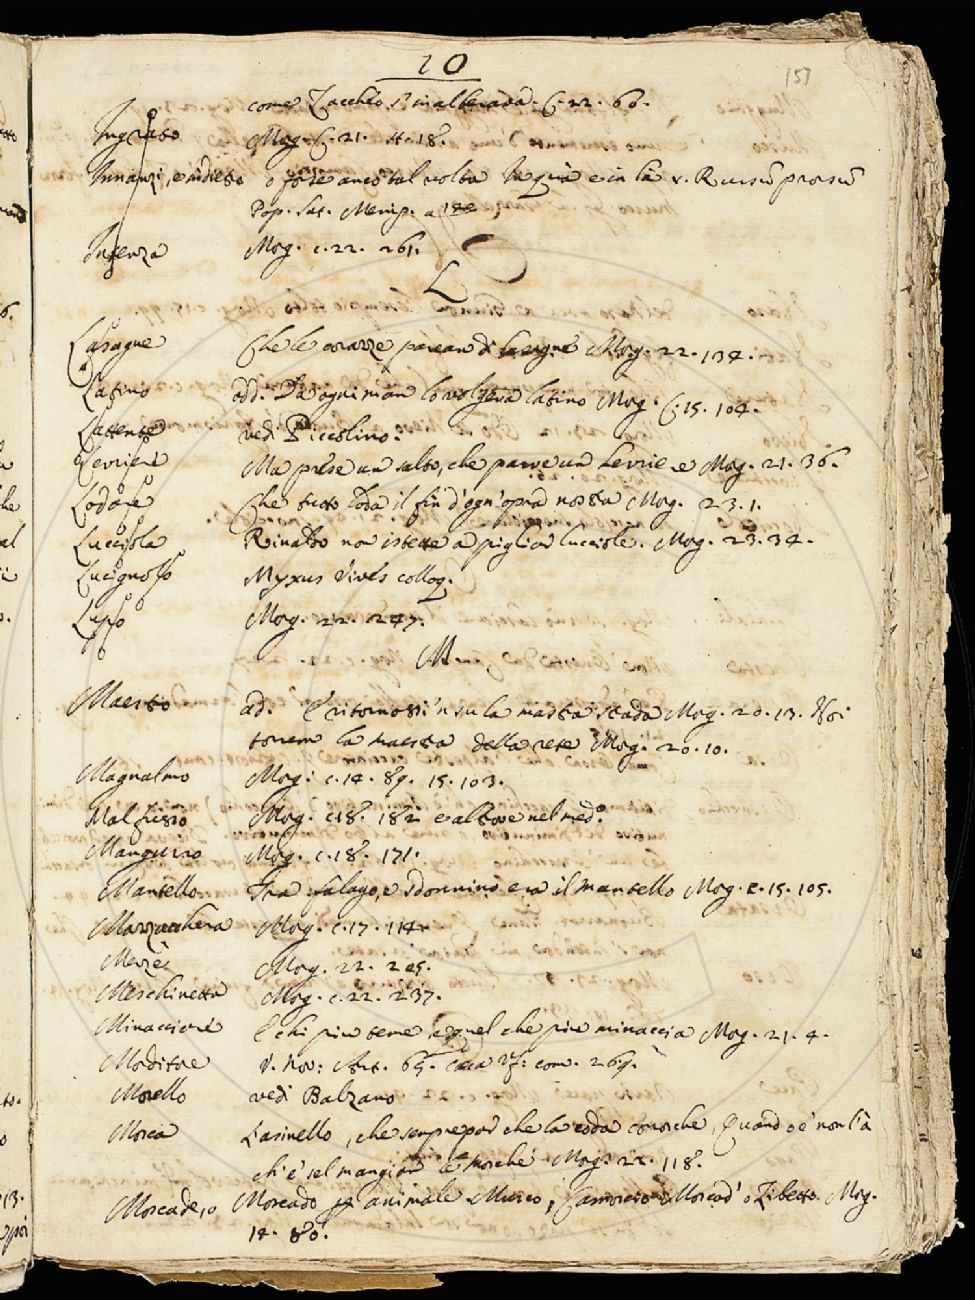 10
151
come Zaccheo s'inalberava. C. 22. 66.
Ingrato Mog. C. 21. st. 18.
Innanzi, e indieto o forse anco tal volta In quà e in là v. Rursũ prorsũ
Pap. Sat. Menip. a
Intenza Mog. c. 22. 261.
L
Lasagne Che le corazze parean di lasagne Mog. 22. 134.
Latino add. Da ogni man lo volgeva latino Mog. C. 15. 104.
Lattente vedi Piccolino.
Levriere Ma prese un salto, che parve un Levrie-e Mog. 21. 36.
Lodare Che tutto loda il fin d'ogn'opra nostra Mog. 23. 1.
Lucciola Rinaldo non istette a pigliar lucciole. Mog. 23. 34.
Lucignolo Myxus Vives colloq.
Lupo Mog. 22. 247.
M
Maestro ad. E ritornossi 'n su la mastra strada Mog. 20. 13. Noi
torrem la maestra della rete Mog. 20. 10.
Magnalmo Mog. c. 14. 89. 15. 103.
Malfusso Mog. c. 18. 182 e altrove nel med.º
Mangiairo Mog. c. 18. 171.
Mantello Fra falago, e sdonnino era il mantello Mog. c. 15. 105.
Mazzachera Mog. c. 17. 114.
Merzè Mog. 22. 205.
Meschinetta Mog. c. 22. 237.
Minacciare E chi piu teme, è quel che piu minaccia Mog. 21. 4.
Morditore V. Nov: Ant. 65. com. 269.
Morello vedi Balzano
Mosca L'asinello, che sempre par che la coda conosche, Quando e' non l'à
ch'è sel mangian le mosche Mog. 22. 118.
Moscade, o Moscado animale Musco, Camorcio Moscad' o Zibetto Mog.
14. 80.